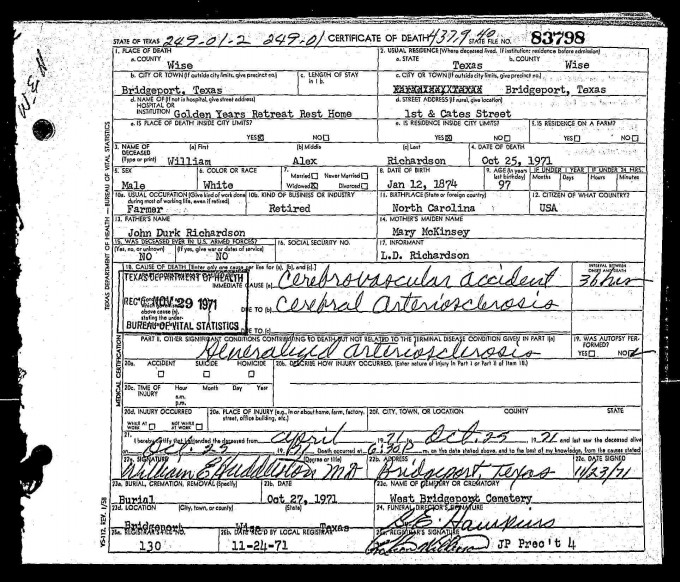 STATE OF TEXAS 249-01-2 249-01 CERTIFICATE OF DEATH 437.9 40 STATE FILE NO. 83798
1. PLACE OF DEATH
a. COUNTY
Wise
2. USUAL RESIDENCE (Where deceased lived. If institution: residence before admission)
a. STATE
Texas
b. COUNTY
Wise
b. CITY OR TOWN (If outside city limits, give precinct no.)
Bridgeport, Texas
c. LENGTH OF STAY in 1 b.
c. CITY OR TOWN (If outside city limits, give precinct no.)
Bridgeport, Texas
d. NAME OF (If not in hospital, give street address)
HOSPITAL OR
INSTITUTION Golden Years Retreat Rest Home
d. STREET ADDRESS (If rural, give location)
1st & Cates Street
e. IS PLACE OF DEATH INSIDE CITY LIMITS?
YES☒ NO☐
e. IS RESIDENCE INSIDE CITY LIMITS?
YES☒ NO☐
f. IS RESIDENCE ON A FARM?
YES☐ NO☐
3. NAME OF DECEASED (Type or print)
(a) First
William
(b) Middle
Alex
(c) Last
Richardson
4. DATE OF DEATH
Oct 25, 1971
5. SEX
Male
6. COLOR OR RACE
White
7. Married☐ Never Married☐
Widowed☒ Divorced☐
8. DATE OF BIRTH
Jan 12, 1874
9. AGE (In years last birthday)
97
IF UNDER 1 YEAR
Months Days
IF UNDER 24 HRS.
Hours Minutes
10a. USUAL OCCUPATION (Give kind of work done during most of working life, even if retired)
Farmer
10b. KIND OF BUSINESS OR INDUSTRY
Retired
11. BIRTHPLACE (State or foreign country)
North Carolina
12. CITIZEN OF WHAT COUNTRY?
USA
13. FATHER'S NAME
John Durk Richardson
14. MOTHER'S MAIDEN NAME
Mary McKinsey
15. WAS DECEASED EVER IN U.S. ARMED FORCES?
(Yes, no, or unknown) (If yes, give war or dates of service)
NO NO
16. SOCIAL SECURITY NO.
17. INFORMANT
L.D. Richardson
18. CAUSE OF DEATH [Enter only one cause per line for (a), (b), and (c).]
INTERVAL BETWEEN ONSET AND DEATH
TEXAS DEPARTMENT OF HEALTH
REC'D NOV 29 1971
BUREAU OF VITAL STATISTICS
IMMEDIATE CAUSE (a) Cerebrovascular accident 36 hrs
DUE TO (b) Cerebral Arteriosclerosis
above cause (a), stating the under-
DUE TO (c)
PART II. OTHER SIGNIFICANT CONDITIONS CONTRIBUTING TO DEATH BUT NOT RELATED TO THE TERMINAL DISEASE CONDITION GIVEN IN PART I(a)
Generalized arteriosclerosis
19. WAS AUTOPSY PERFORMED?
YES☐ NO☑
20a. ACCIDENT SUICIDE HOMICIDE
☐ ☐ ☐
20b. DESCRIBE HOW INJURY OCCURRED. (Enter nature of injury in Part I or Part II of item 18.)
20c. TIME OF INJURY
Hour Month Day Year
a.m.
p.m.
20d. INJURY OCCURRED
WHILE AT WORK ☐ NOT WHILE AT WORK ☐
20e. PLACE OF INJURY (e.g., in or about home, farm, factory, street, office building, etc.)
20f. CITY, TOWN, OR LOCATION COUNTY STATE
21. I hereby certify that I attended the deceased from April 1971, to Oct. 25 1971 and last saw the deceased alive
on Oct. 25 19 Death occurred at 6:30 m., on the date stated above, and to the best of my knowledge, from the causes stated.
22a. SIGNATURE (Degree or title)
William E Huddleston MD
22b. ADDRESS
Bridgeport Texas
22c. DATE SIGNED
11/23/71
23a. BURIAL, CREMATION, REMOVAL (Specify)
Burial
23b. DATE
Oct 27, 1971
23c. NAME OF CEMETERY OR CREMATORY
West Bridgeport Cemetery
23d. LOCATION (City, town, or county) (State)
Bridgeport Wise Texas
24. FUNERAL DIRECTOR'S SIGNATURE
Hawkins
25a. REGISTRAR'S FILE NO.
130
25b. DATE REC'D BY LOCAL REGISTRAR
11-24-71
JP Prec't 4
TEXAS DEPARTMENT OF HEALTH — BUREAU OF VITAL STATISTICS
MEDICAL CERTIFICATION
VS-112, REV. 1/58